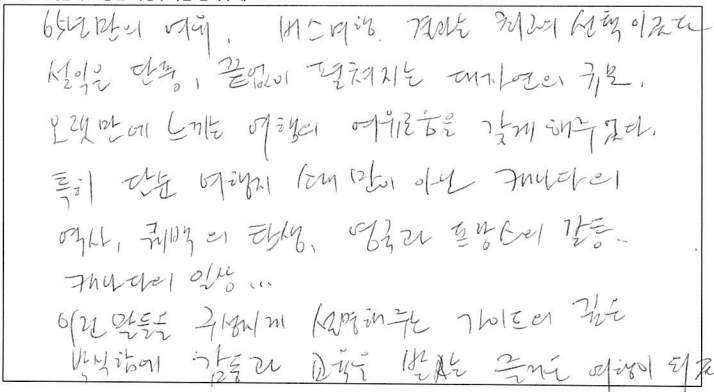 65년만의 여유, 버스여행. 결과는 최고의 선택이었다
설익은 단풍, 끝없이 펼쳐지는 대자연의 규모.
오랫만에 느끼는 여행의 여유로움을 갖게 해주었다.
특히 단순 여행지 소개만이 아닌 캐나다의
역사, 퀘백의 탄생, 영국과 프랑스의 갈등..
캐나다의 일상...
이런 말들을 구성지게 설명해주는 가이드의 깊은
박식함에 감동과 교육을 받는 즐거운 여행이 되었